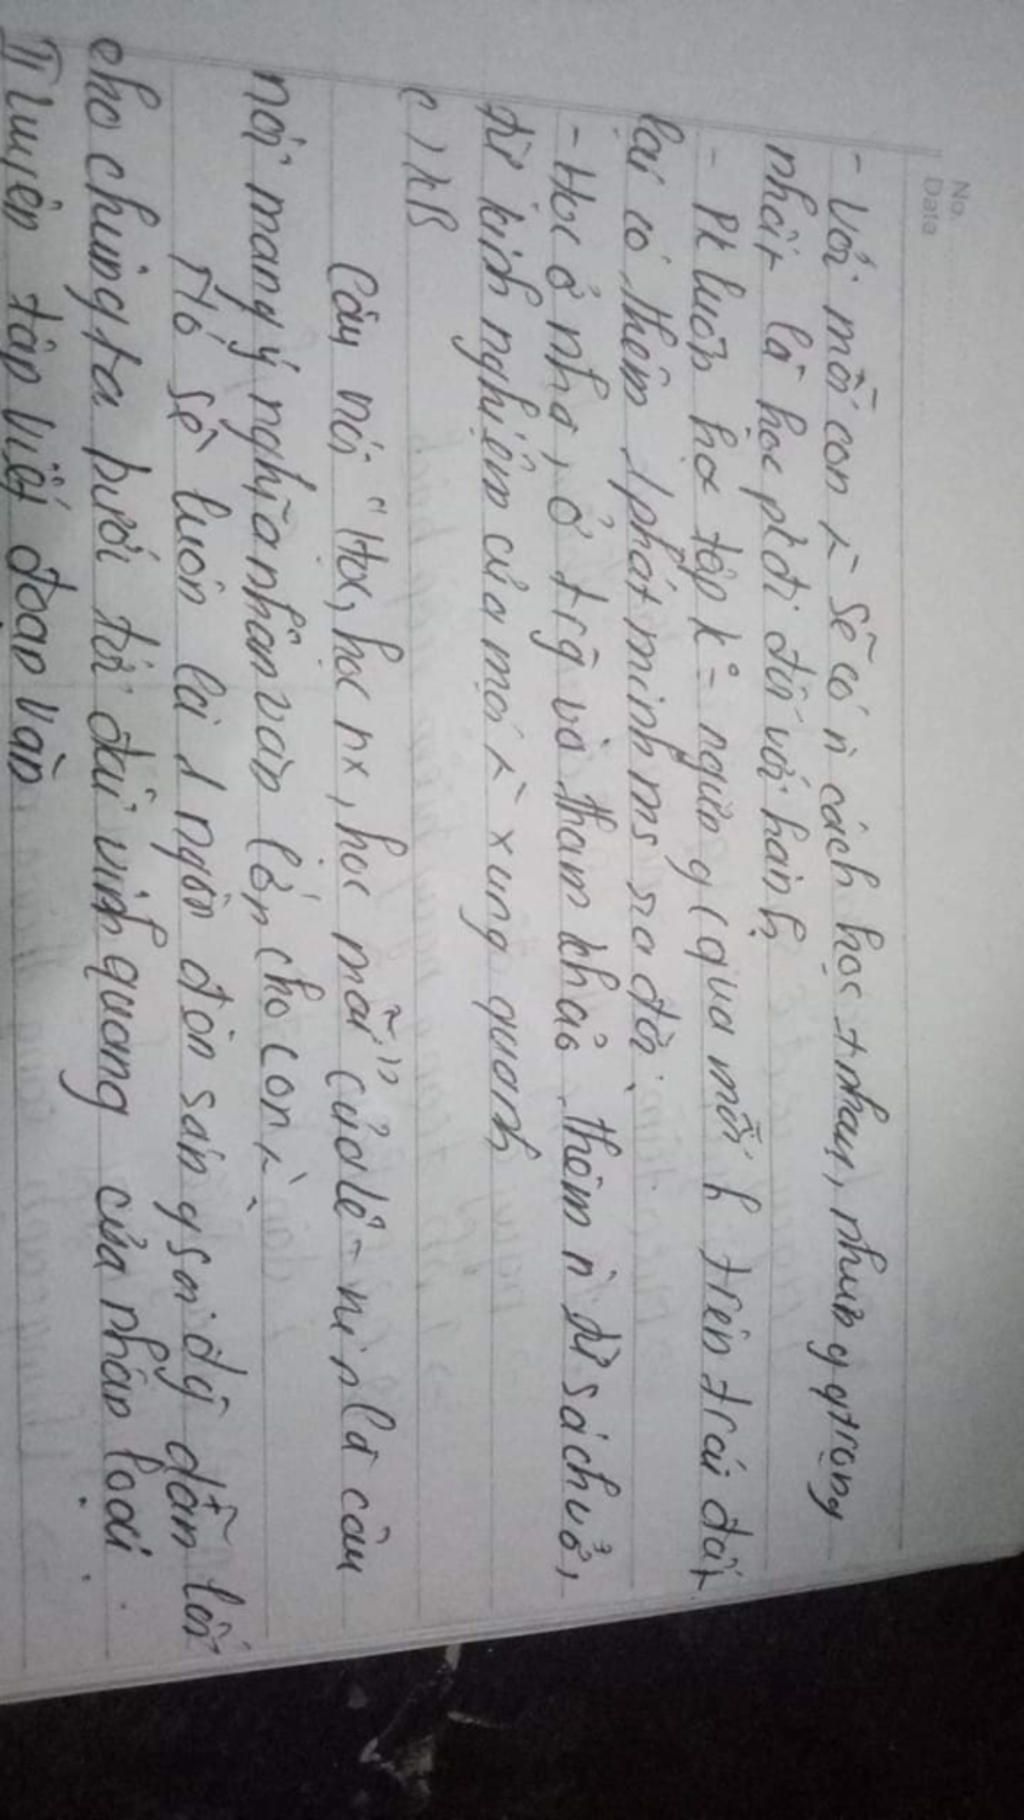 No.
Date
- Với mỗi con ng` sẽ có n cách học # nhau, nhưng q trọng
nhất là học p đi đôi với hành
- Pk luôn học tập k° ngừng (qua mỗi h trên trái đất
lại có thêm 1 phát minh ms ra đời.
- Học ở nhà, ở trg và tham khảo thêm n từ sách vở,
từ kinh nghiệm của mọi ng` xung quanh
c) KB
Câu nói "Học, học nx, học mãi" của Lê-nin là câu
nói mang ý nghĩa nhân văn lớn cho con ng`.
Nó sẽ luôn là 1 ngọn đèn sáng soi đg dẫn lối
cho chúng ta bước tới đài vinh quang của nhân loại.
II Luyện tập viết đoạn văn